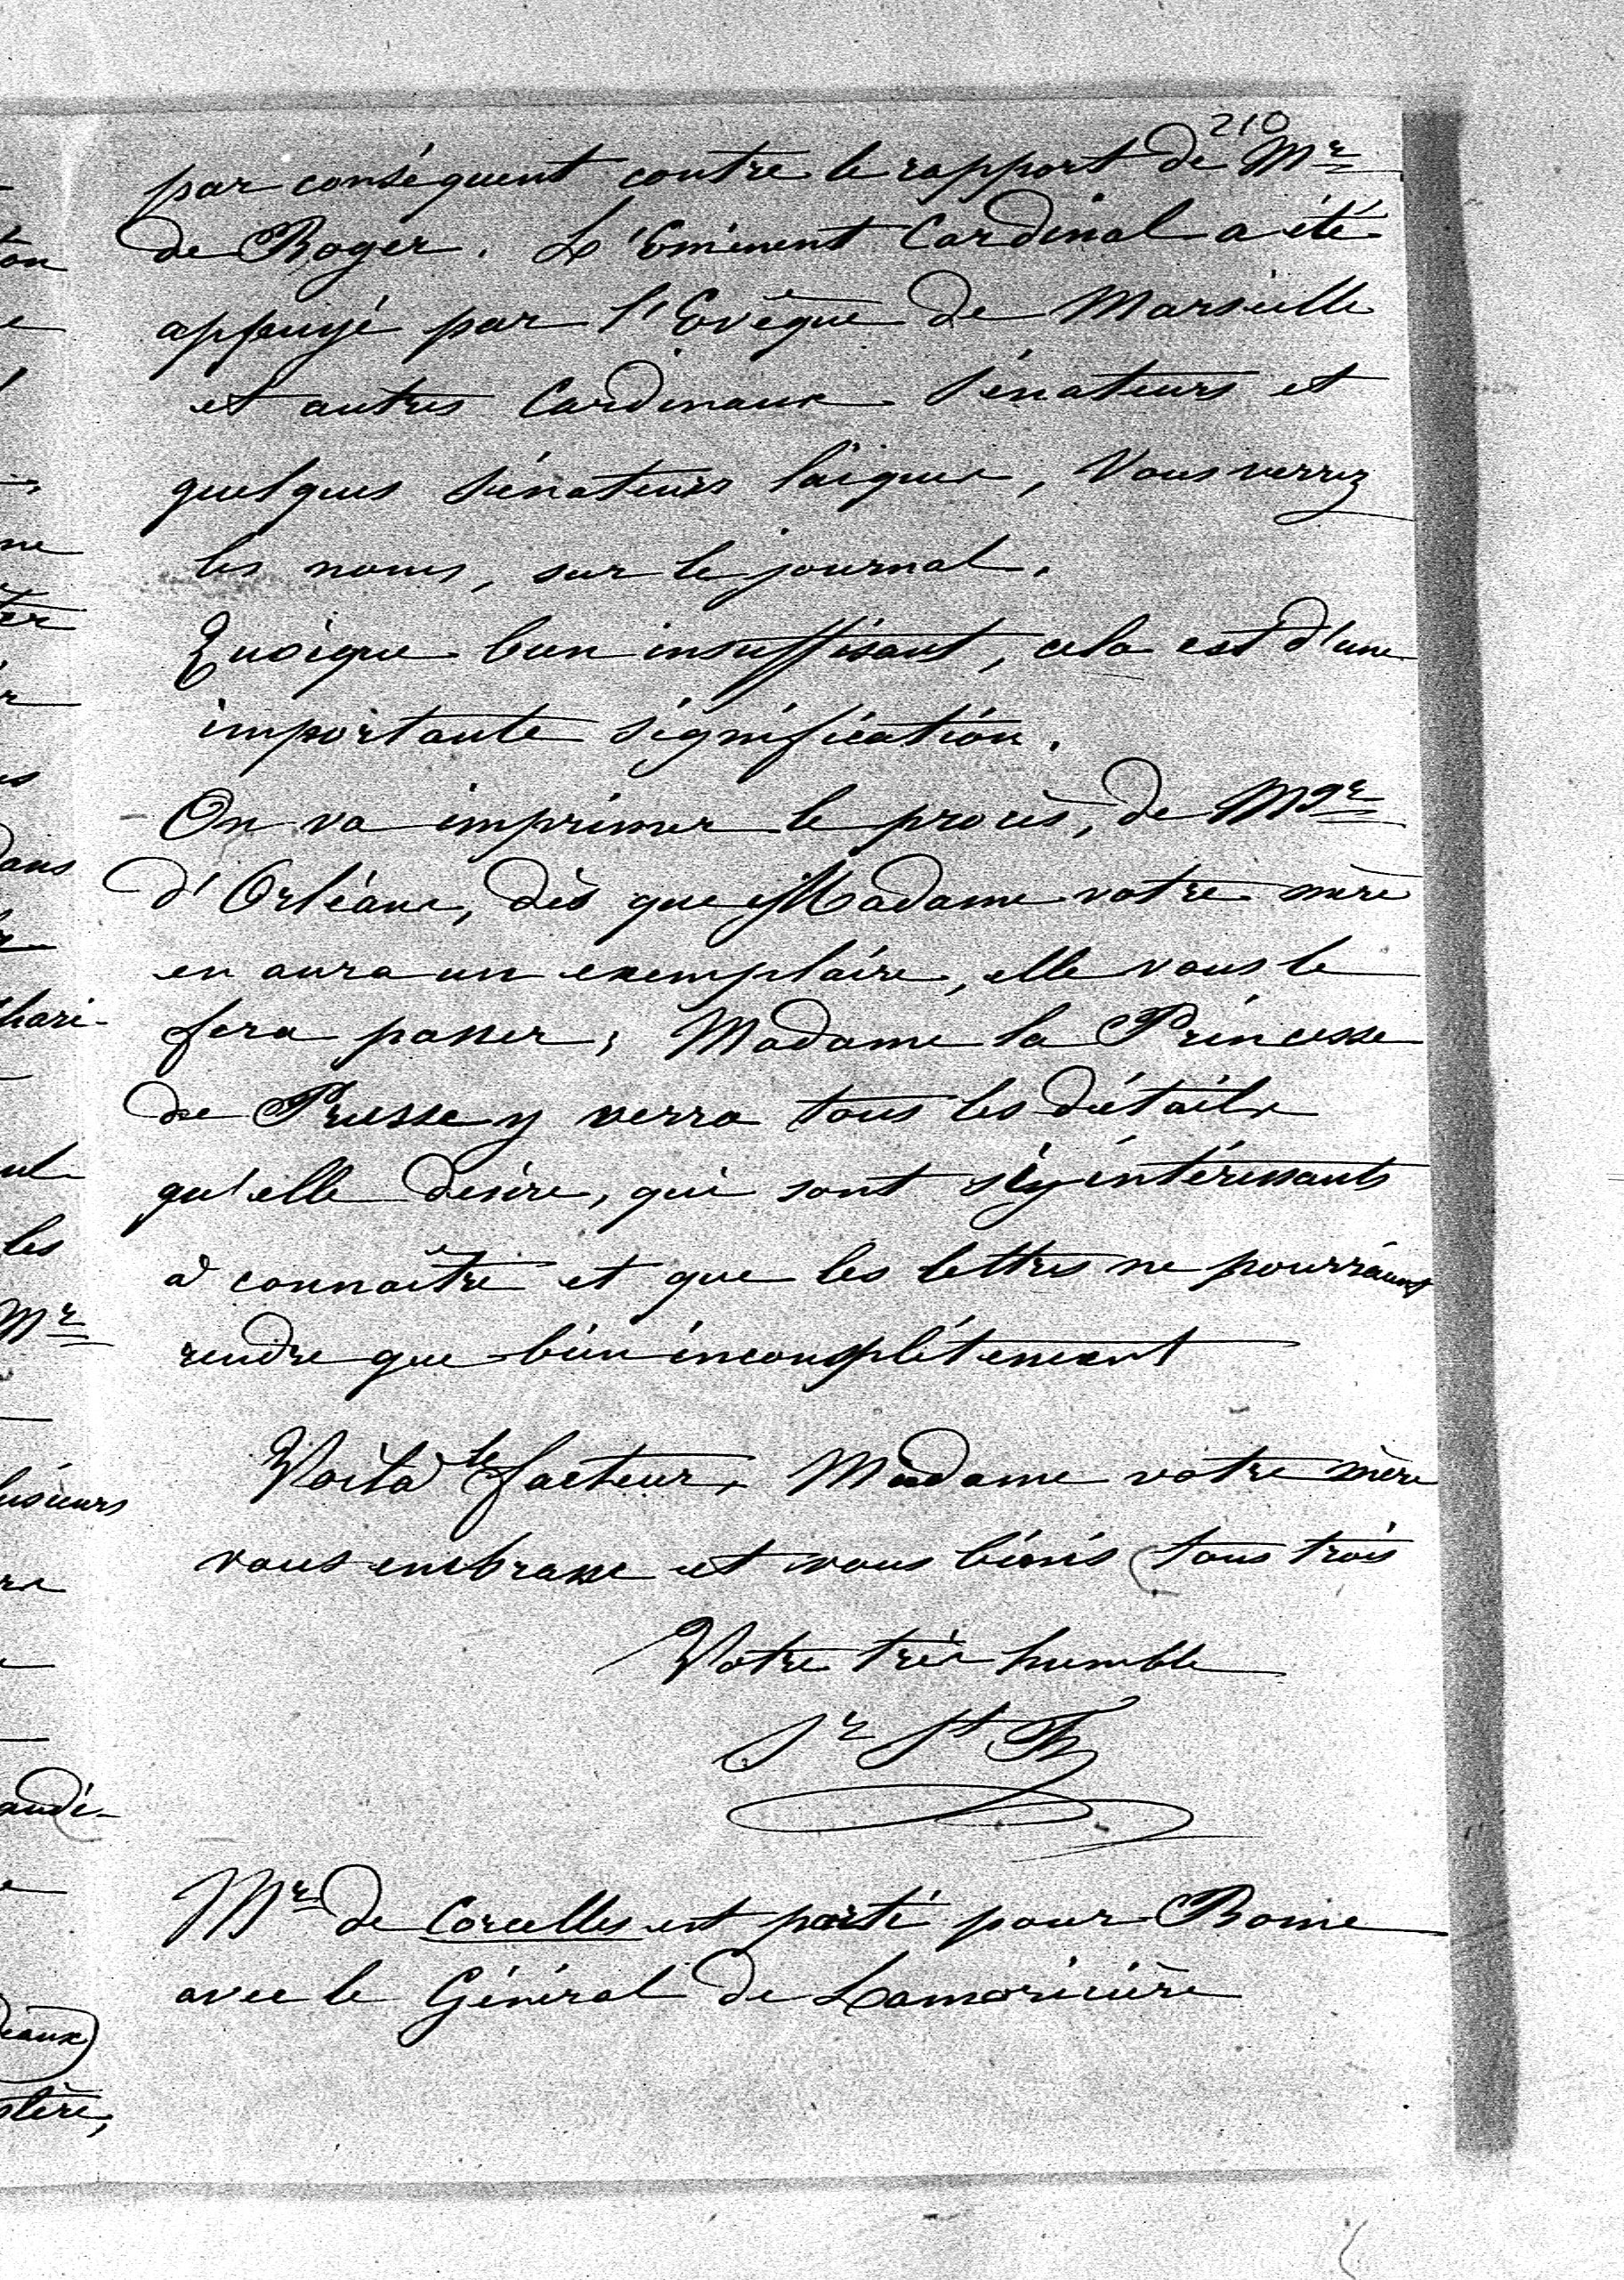 210
par conséquent contre le rapport de Mr
de Roger. L'Eminent Cardinal a été
appuyé par l'Evêque de Marseille
et autres Cardinaux Sénateurs et
quelques Sénateurs laïques, Vous verrez
les noms, sur le journal.
Quoique bien insuffisant, cela est d'une
importante signification.
On va imprimer le procès, de Mgr
d'Orléans, dès que Madame votre mère
en aura un exemplaire, elle vous le
fera passer; Madame la Princesse
de Prusse y verra tous les détails
qu'elle désire, qui sont si intéressants
à connaître et que les lettres ne pourraient
rendre que bien incomplètement
Voilà le facteur, Madame votre mère
vous embrasse et vous bénis tous trois
Votre très humble
Sr St
Mr de Corcelles est parti pour Rome
avec le Général de Lamoricière
on
me
ter
dans
hari-
les
Mr
lusieurs
andi-
eaux)
stère,